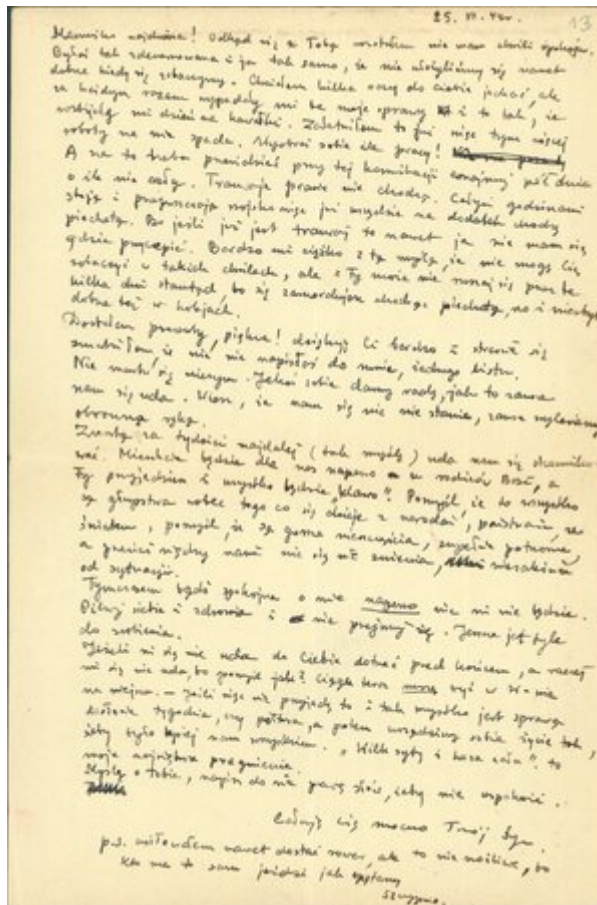 25. VI. 44r. 13
Mamusiu najdroższa! Odkąd się z Tobą rozstałem nie mam chwili spokoju.
Byłaś tak zdenerwowana i ja tak samo, że nie nawet
Chciałem kilka razy do ciebie jechać, ale
za każdym razem wypadały mi te moje sprawy i to tak, że
mi dzień na kawałki. Załatwiłem to już więc tyma więcej
roboty na mnie spada. sobie ile pracy!
A na to trzeba przy tej komunikacji conajmniej pół dnia
o ile nie cały. Tramwaje prawie nie chodzą. Całymi godzinami
stoją i przepuszczają wojsko więc już wszędzie na dodatek chodzę
piechotą. Bo jeśli już jest tramwaj to nawet ja nie mam się
gdzie przyczepić. Bardzo mi ciężko z tą myślą, że nie mogę Cię
zobaczyć w takich chwilach, ale Ty może nie ruszaj się przez te
kilka dni stamtąd, bo się zamordujesz chodząc piechotą, no i
dobrze też w kolejach.
Dostałem , piękne! dziękuję Ci bardzo z strasznie się
smuciłem, że nie nie napisłaś do mnie, żadnego listu.
Nie martw się niczym. Jakoś sobie damy radę, jak to zawsze
nam się uda. Wiesz, że nam się nic nie stanie, zawsze
obronną ręką.
Zresztą za tydzień najdalej (tak myślę) uda nam się
Mieszkanie będzie dla nas napewno u rodziców , a
Ty przyjedziesz i wszystko będzie „klawo". Pomyśl, że to wszystko
są głupstwa wobec tego co się dzieje z narodami, państwami, ze
światem, pomyśl, że są gorsze nieszczęścia, zupełnie potworne,
a przecież między nami nic się nie zmienia, niezależnie
od sytuacji.
Tymczasem bądź spokojna o mnie napewno nic mi nie będzie.
Pilnuj siebie i zdrowia i nie przejmuj się. Jeszcze jest tyle
do zrobienia.
Jeżeli mi się nie uda do Ciebie dostać przed końcem, a raczej
mi się nie uda, bo pomyśl jak? Ciągle teraz muszę być w W-wie
na miejscu. – Jeśli więc nie przyjadę to i tak wszystko jest sprawą
tygodnia, czy półtora, a potem urządzimy sobie życie tak,
żeby było lepiej nam wszystkim. „Wilk syty i koza cała" to
moje najwyższe pragnienie.
Myślę o tobie, napisz do mnie parę słów, żeby mnie uspokoić.
Całuję Cię mocno Twój Syn.
p.s. nawet dostać rower, ale to nie możliwe, bo
kto ma to sam jeździ jak opętany